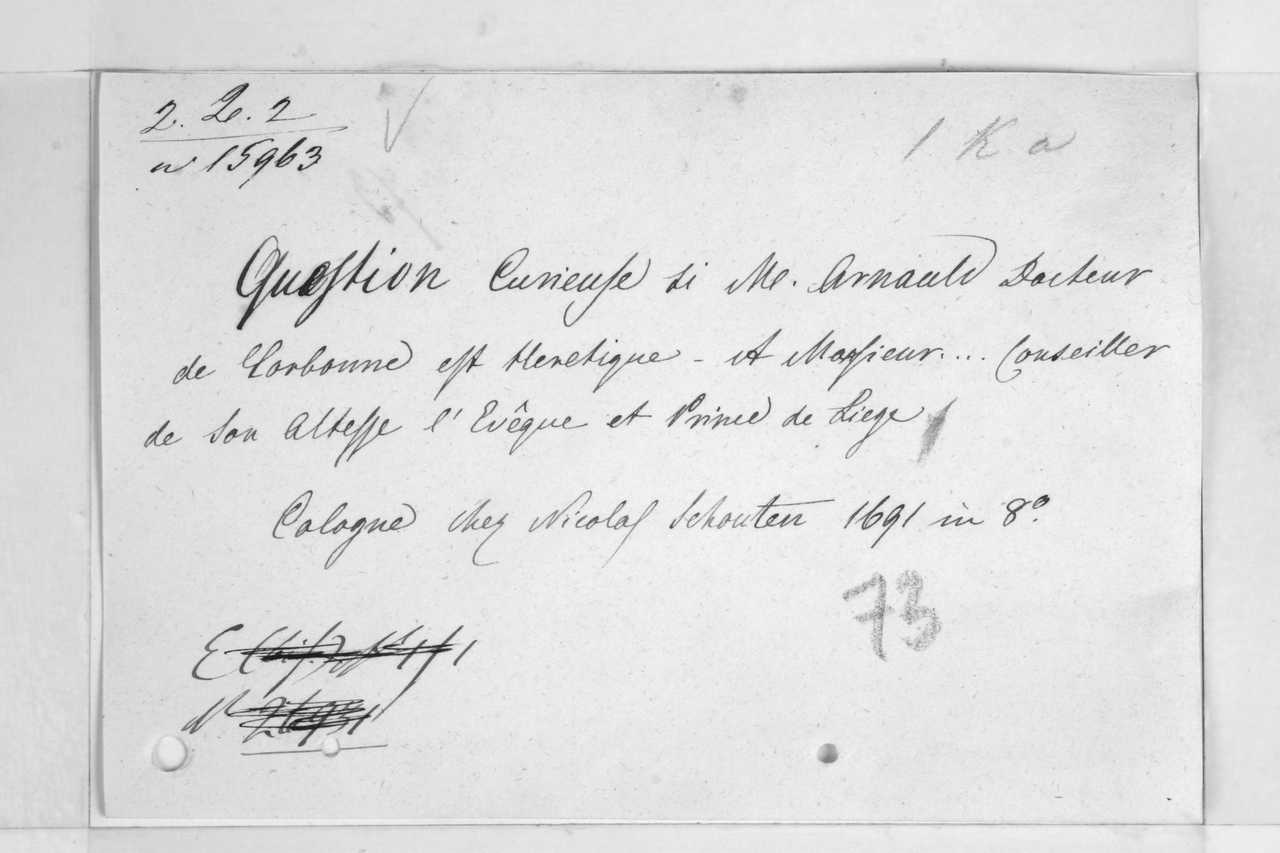 2. 2e. 2
n 15963
1 K a
Question Curieuse si Mr. Arnauld Docteur
de Sorbonne est Heretique - A Monsieur... Conseiller
de son Altesse l'Evêque et Prince de Liege
Cologne chez Nicolas Schouten 1691 in 8º
73
E